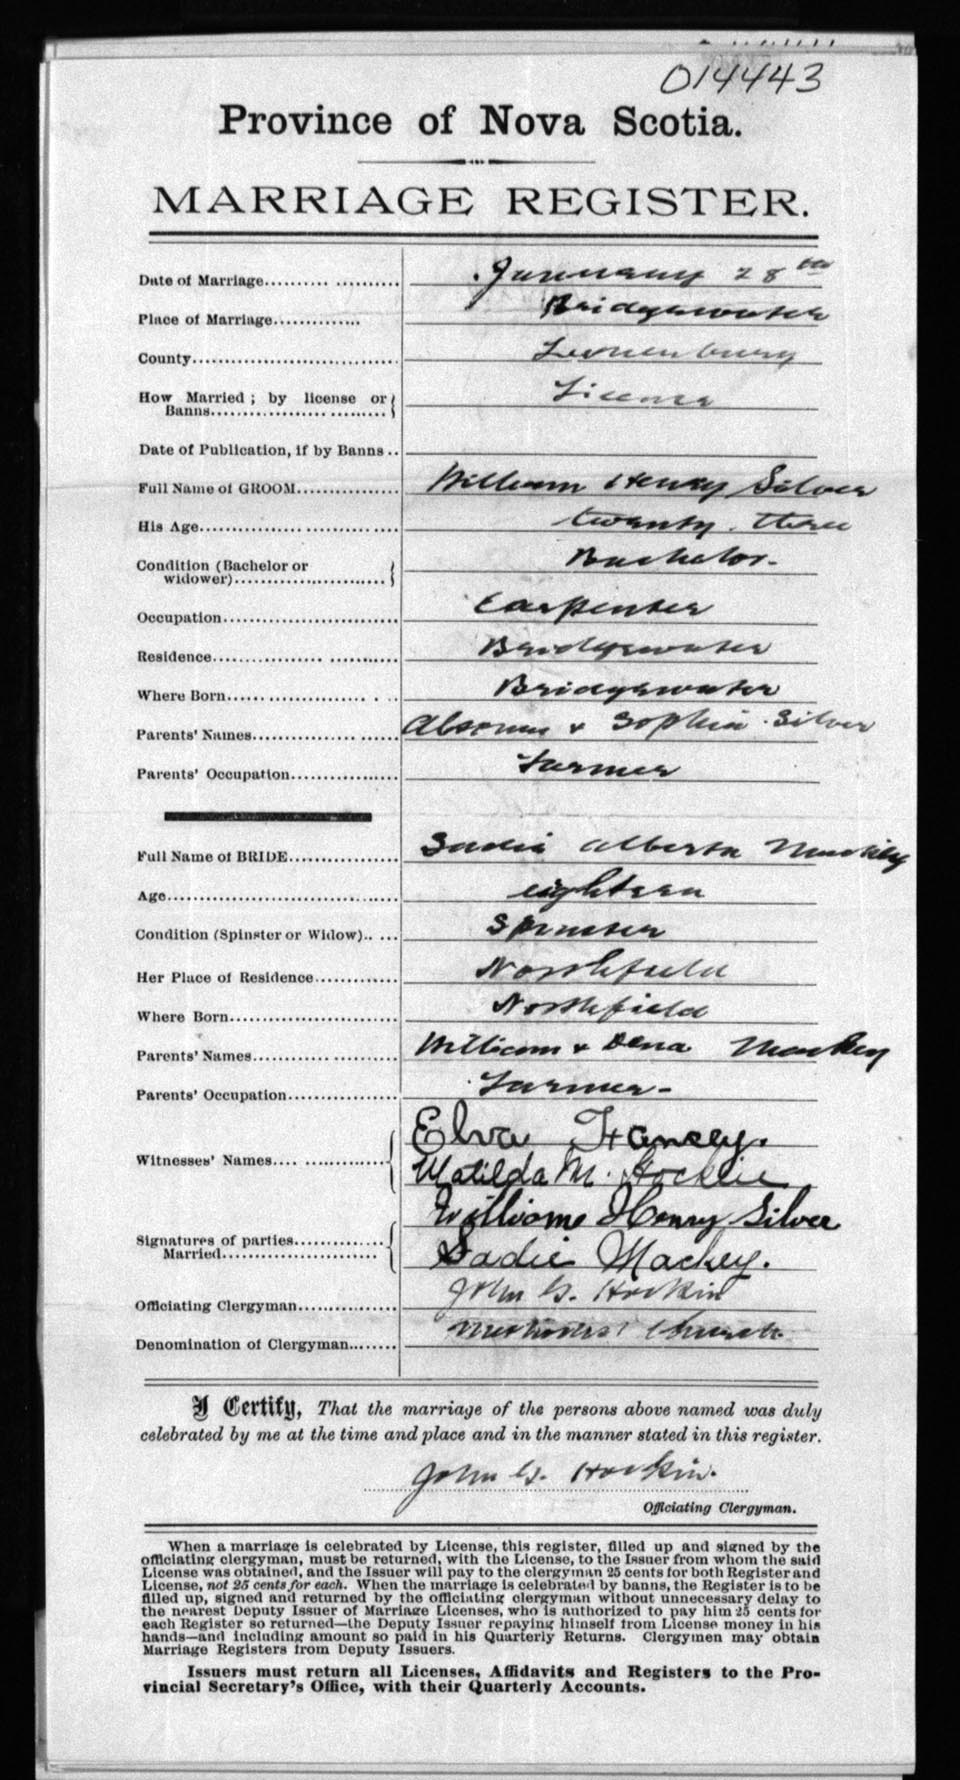 014443
Province of Nova Scotia.
MARRIAGE REGISTER.
Date of Marriage.......... .......... January 28th
Place of Marriage............. Bridgewater
County.............................. Lunenburg
How Married ; by license or Banns.................. ......... License
Date of Publication, if by Banns ..
Full Name of GROOM............... William Henry Silver
His Age............................. twenty three
Condition (Bachelor or widower)...................... Bachelor.
Occupation.......................... Carpenter
Residence................ .......... Bridgewater
Where Born...... ............... . .. Bridgewater
Parents' Names................ ..... & Sophia Silver
Parents' Occupation................ Farmer
Full Name of BRIDE................ Sadie Alberta
Age.................................. eighteen
Condition (Spinster or Widow).. ... Spinster
Her Place of Residence............ Northfield
Where Born......................... Northfield
Parents' Names............ ......... William & Dena Mackey
Parents' Occupation................ Farmer-
Witnesses' Names.... ............ Elva
Matilda M. Hockin
Signatures of parties Married...................... William Henry Silver
Sadie Mackey.
Officiating Clergyman............... John G. Hockin
Denomination of Clergyman........ Methodist Church.
I Certify, That the marriage of the persons above named was duly
celebrated by me at the time and place and in the manner stated in this register.
John G. Hockin.
Officiating Clergyman.
When a marriage is celebrated by License, this register, filled up and signed by the
officiating clergyman, must be returned, with the License, to the Issuer from whom the said
License was obtained, and the Issuer will pay to the clergyman 25 cents for both Register and
License, not 25 cents for each. When the marriage is celebrated by banns, the Register is to be
filled up, signed and returned by the officiating clergyman without unnecessary delay to
the nearest Deputy Issuer of Marriage Licenses, who is authorized to pay him 25 cents for
each Register so returned—the Deputy Issuer repaying himself from License money in his
hands—and including amount so paid in his Quarterly Returns. Clergymen may obtain
Marriage Registers from Deputy Issuers.
Issuers must return all Licenses, Affidavits and Registers to the Pro-
vincial Secretary's Office, with their Quarterly Accounts.